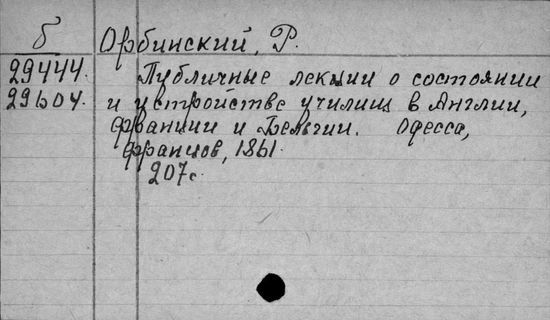 б
Орбинский, Р.
29444.
29604.
Публичные лекции о состоянии
и устройстве училищ в Англии,
Франции и Бельгии. Одесса,
Францов, 1861.
207с.